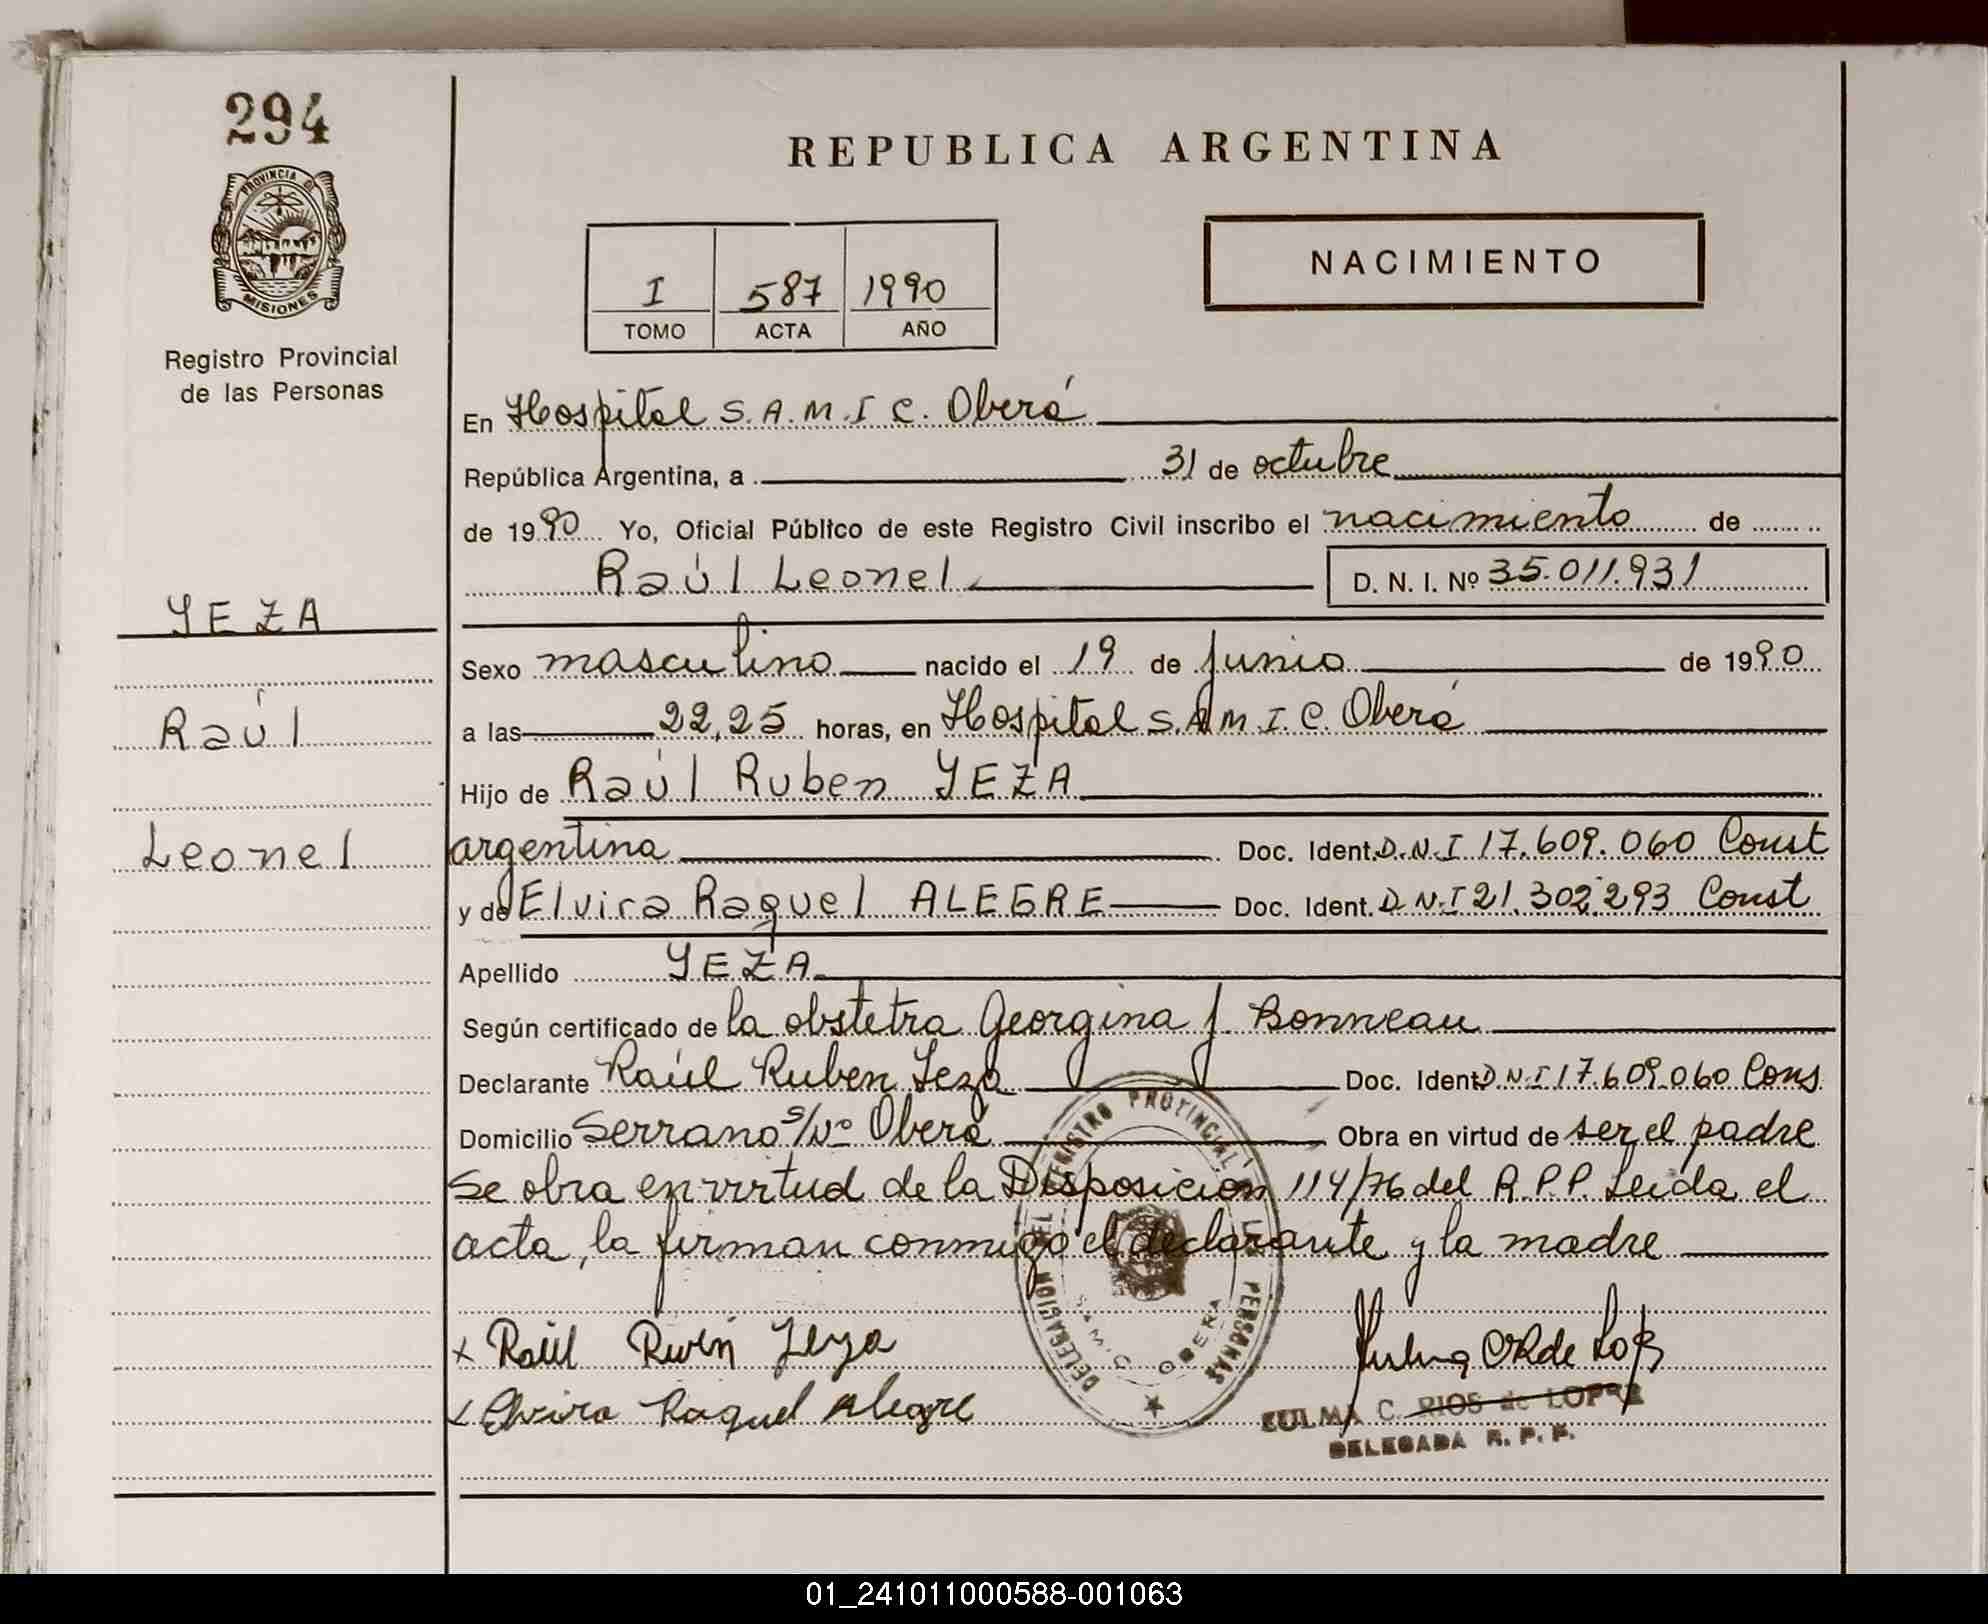 294
REPUBLICA ARGENTINA
PROVINCIA DE
MISIONES
Registro Provincial
de las Personas
I 587 1990
TOMO ACTA AÑO
NACIMIENTO
En Hospital S.A.M.I C. Oberá
República Argentina, a 31 de octubre
de 1990 Yo, Oficial Público de este Registro Civil inscribo el nacimiento de
Raúl Leonel D. N. I. Nº 35.011.931
YEZA
Sexo masculino nacido el 19 de junio de 1990
Raúl
a las 22,25 horas, en Hospital S.A.M.I.C. Oberá
Hijo de Raúl Ruben YEZA
Leonel
argentina Doc. Ident. D.N.I 17.609.060 Const
y de Elvira Raquel ALEGRE Doc. Ident. D.N.I 21.302.293 Const
Apellido YEZA
Según certificado de la obstetra Georgina J. Bonneau
Declarante Raúl Ruben Yeza Doc. Ident D.N.I 17.609.060 Cons
Domicilio Serrano s/Nº Oberá Obra en virtud de ser el padre
Se obra en virtud de la Disposición 114/76 del R.P.P. Leida el
acta, la firman conmigo el declarante y la madre
DELEGACION DEL REGISTRO PROVINCIAL PERSONAS
S.A.M.I.C OBERA
x Raúl Ruben Yeza
x Elvira Raquel Alegre
ZULMA C. RIOS de LOPEZ
DELEGADA R. P. P.
01_241011000588-001063